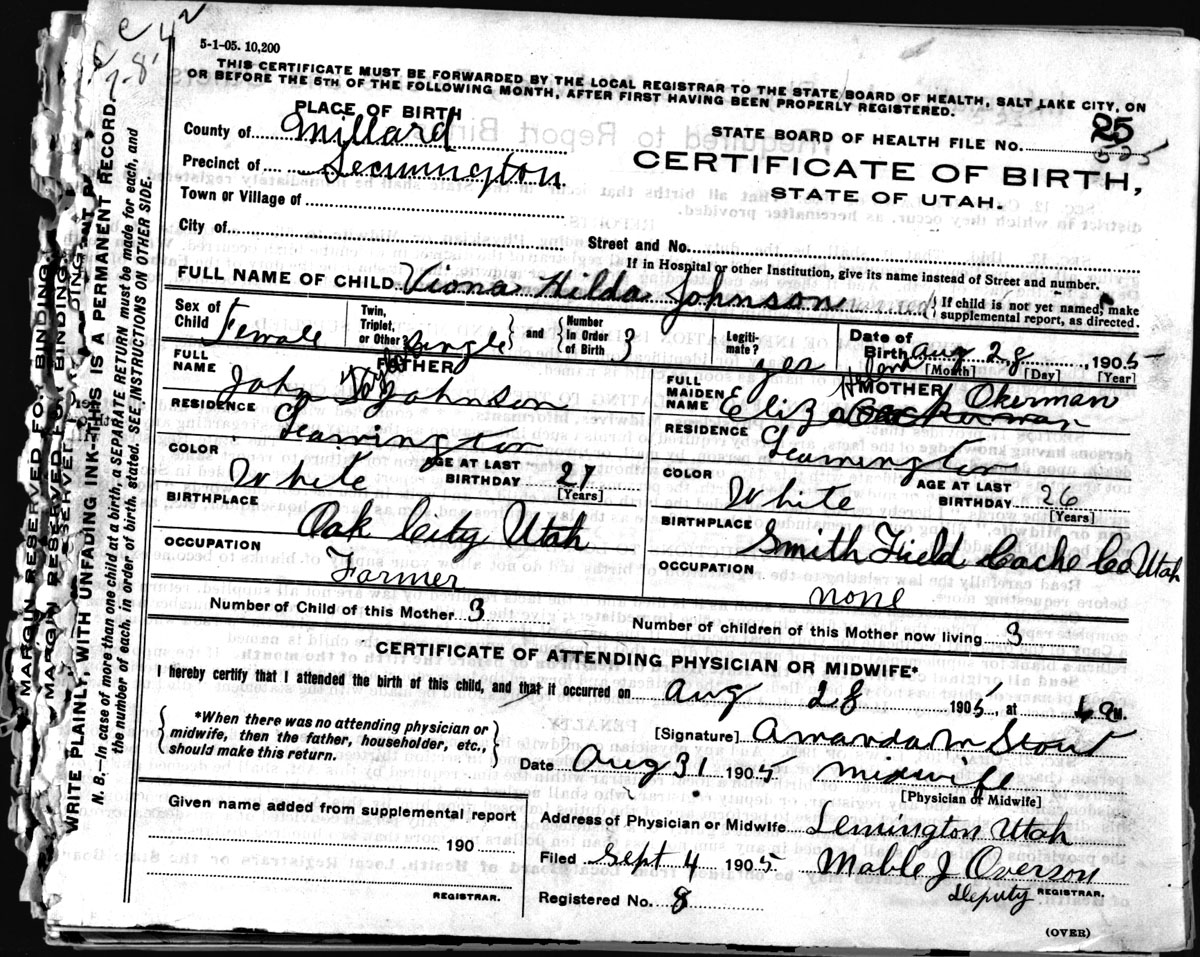 5-1-05. 10,200
THIS CERTIFICATE MUST BE FORWARDED BY THE LOCAL REGISTRAR TO THE STATE BOARD OF HEALTH, SALT LAKE CITY, ON
OR BEFORE THE 5TH OF THE FOLLOWING MONTH, AFTER FIRST HAVING BEEN PROPERLY REGISTERED.
PLACE OF BIRTH
County of Millard
Precinct of Lemmington
Town or Village of
City of
STATE BOARD OF HEALTH FILE NO. 25
525
CERTIFICATE OF BIRTH,
STATE OF UTAH.
Street and No.
If in Hospital or other Institution, give its name instead of Street and number.
FULL NAME OF CHILD Viona Hilda Johnson { If child is not yet named, make
supplemental report, as directed.
Sex of Child Female
Twin, Triplet, or Other? Single } and { Number In Order of Birth 3
Legiti-mate? yes
Date of Birth Aug 28, 1905
[Month] [Day] [Year]
FATHER
FULL NAME John Johnson
RESIDENCE Leamington
COLOR White
AGE AT LAST BIRTHDAY 27
[Years]
BIRTHPLACE Oak City Utah
OCCUPATION Farmer
MOTHER
FULL MAIDEN NAME Eliza Okerman
RESIDENCE Leamington
COLOR White
AGE AT LAST BIRTHDAY 26
[Years]
BIRTHPLACE Smith Field Cache Co Utah
OCCUPATION none
Number of Child of this Mother 3
Number of children of this Mother now living 3
CERTIFICATE OF ATTENDING PHYSICIAN OR MIDWIFE*
I hereby certify that I attended the birth of this child, and that it occurred on Aug 28 1905, at M.
{ *When there was no attending physician or
midwife, then the father, householder, etc.,
should make this return. }
[Signature] Amanda M Stout
Date Aug 31 1905 midwife
[Physician or Midwife]
Given name added from supplemental report
190
REGISTRAR.
Address of Physician or Midwife Lemington Utah
Filed Sept 4 1905 Mable J Overson
Deputy REGISTRAR.
Registered No. 8
(OVER)
MARGIN RESERVED FOR BINDING.
MARGIN RESERVED FOR BINDING.
WRITE PLAINLY, WITH UNFADING INK—THIS IS A PERMANENT RECORD.
N. B.—In case of more than one child at a birth, a SEPARATE RETURN must be made for each, and
the number of each, in order of birth, stated. SEE INSTRUCTIONS ON OTHER SIDE.